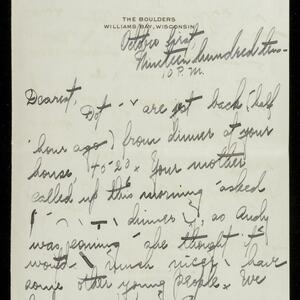 THE BOULDERS
WILLIAMS BAY, WISCONSIN
October first,
Nineteen hundred ten -
10 P.M.
Dearest,
Dot are just back (half
hour ago) from dinner at your
house. Your mother
called up this morning asked
dinner, as Andy
was coming she thought it
would nicer have
some other young people. We